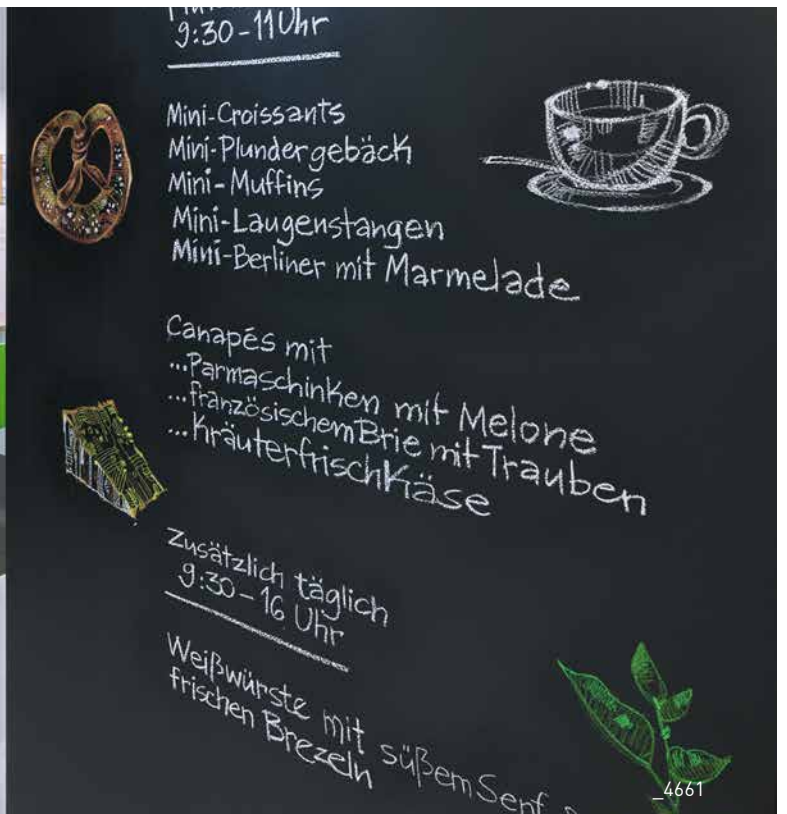 9:30-11Uhr
Mini-Croissants
Mini-Plundergebäck
Mini-Muffins
Mini-Laugenstangen
Mini-Berliner mit Marmelade
Canapés mit
...Parmaschinken mit Melone
...französischem Brie mit Trauben
...Kräuterfrischkäse
Zusätzlich täglich
9:30-16 Uhr
Weißwürste mit süßem Senf
frischen Brezeln
_4661